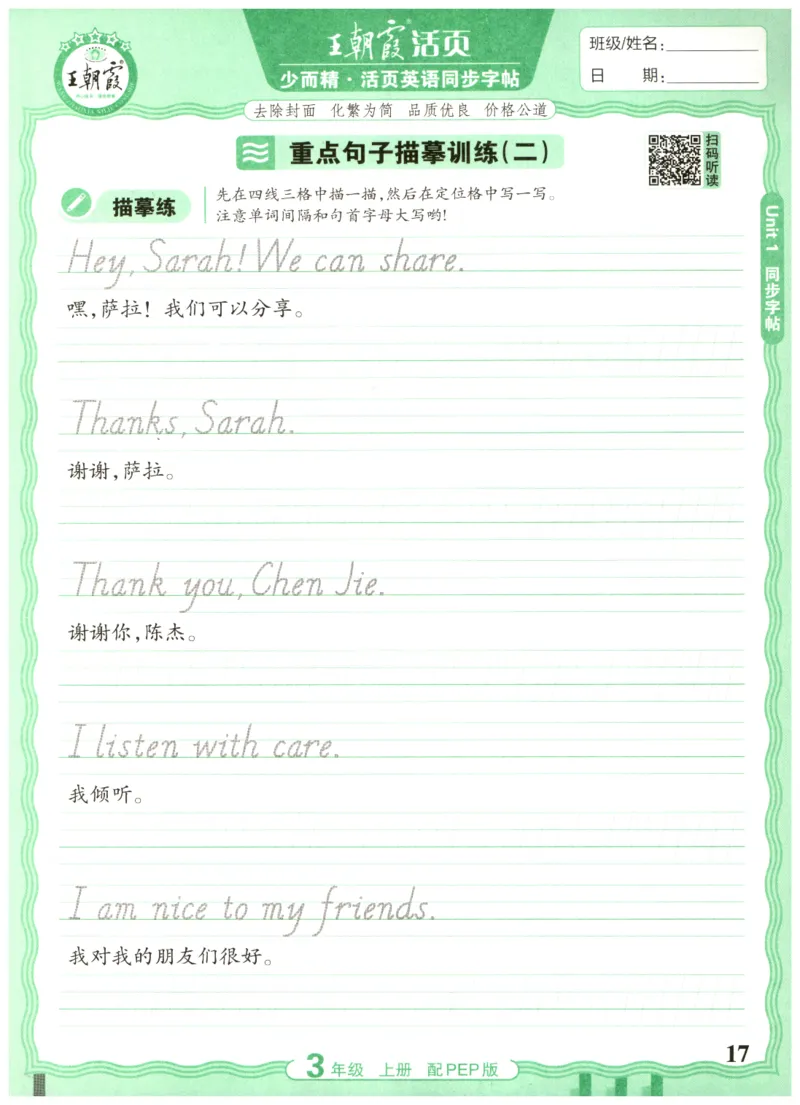 王朝霞活页
班级/姓名：
少而精·活页英语同步字帖
日 期：
王朝霞
去除封面 化繁为简 品质优良 价格公道
重点句子描摹训练(二)
扫码听读
描摹练
先在四线三格中描一描,然后在定位格中写一写。
注意单词间隔和句首字母大写哟!
Unit 1 同步字帖
Hey, Sarah! We can share.
嘿,萨拉! 我们可以分享。
Thanks, Sarah.
谢谢,萨拉。
Thank you, Chen Jie.
谢谢你,陈杰。
I listen with care.
我倾听。
I am nice to my friends.
我对我的朋友们很好。
17
3年级 上册 配PEP版